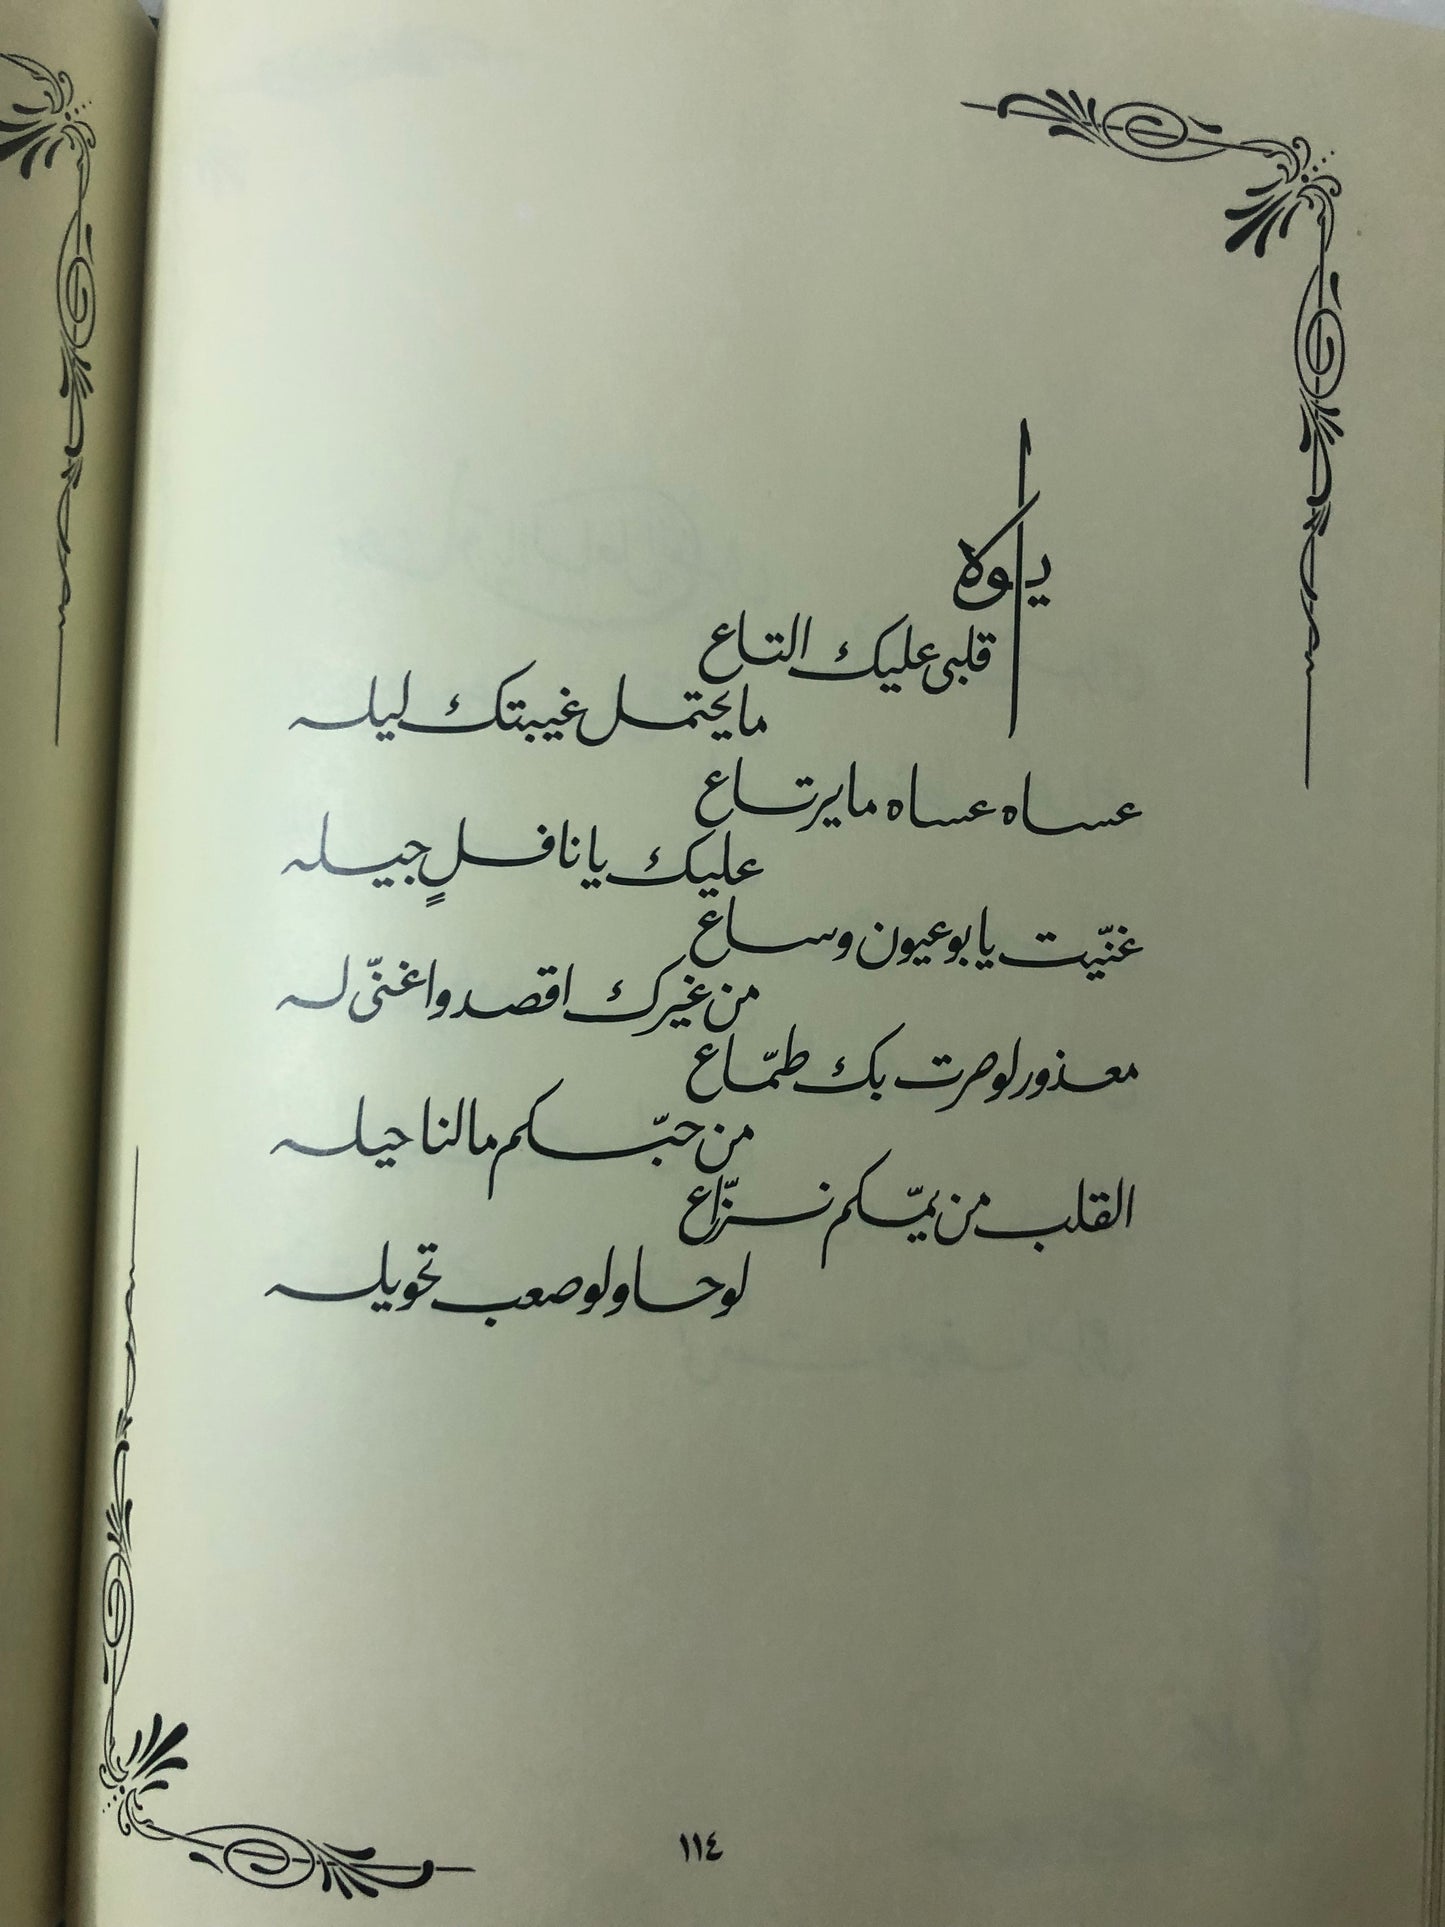 ياوه
قلبي عليك التاع
ما يحتمل غيبتك ليله
عساه عساه ما يرتاع
عليك يا نافلٍ جيله
غنّيت يا بو عيون وساع
من غيرك اقصد واغنّي له
معذور لو صرت بك طمّاع
من حبّكم ما لنا حيله
القلب من يمّكم نزّاع
لو حاولو صعب تحويله
١١٤